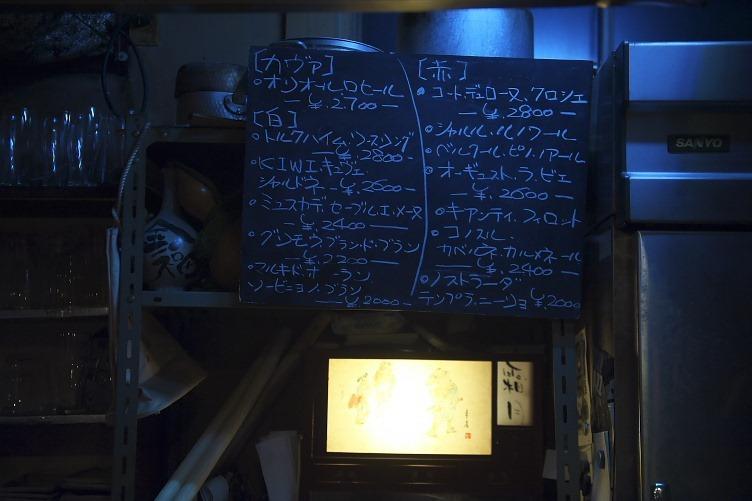 [カヴァ]
・オリオールロヒール
― ¥.2700 ―
[白]
・トルクハイム.リースリング
¥.2800 ―
・KIWI.キュヴェ.
シャルドネ ― ¥.2600 ―
・ミュスカデ.セーブル.エ.メーヌ
― ¥.2400 ―
・グシモウ ブラン.ド.ブラン
― ¥.2200 ―
・マルキド
ソービニョン.ブラン
― ¥.2000 ―
[赤]
・コート.デュ.ローヌ.クロシェ
― ¥.2800 ―
・シャルル.ルノワール
・ベルクール.ピノ.ノアール
・オーギュスト.ラ.ビエ
― ¥.2600 ―
・キアンティ.フィロット
・コノスル.
カベルネ.カルメネール
― ¥.2400 ―
・ノストラーダ
テンプラニーショ ¥.2000
SANYO